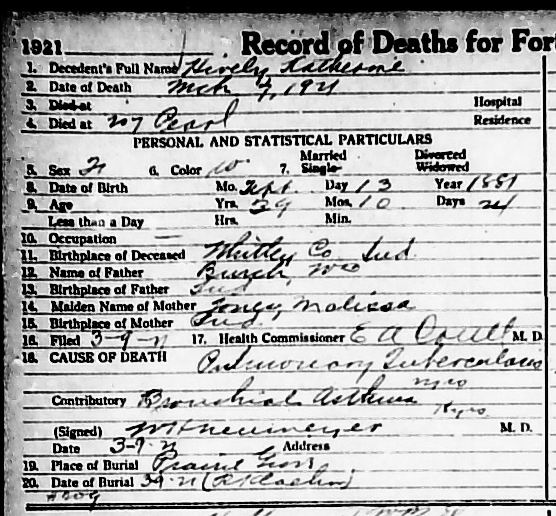 1921 Record of Deaths for Fort
1. Decedent's Full Name Hively, Katherine
2. Date of Death Mch 7, 1921
3. Died at Hospital
4. Died at 207 Pearl Residence
PERSONAL AND STATISTICAL PARTICULARS
5. Sex F 6. Color W. 7. Married Single Divorced Widowed
8. Date of Birth Mo. Sept. Day 13 Year 1881
9. Age Yrs. 39 Mos. 10 Days 24
Less than a Day Hrs. Min.
10. Occupation —
11. Birthplace of Deceased Whitley Co Ind.
12. Name of Father Burch, Wm
13. Birthplace of Father Ind
14. Maiden Name of Mother Malissa
15. Birthplace of Mother Ind.
16. Filed 3-9-21 17. Health Commissioner E A M. D.
18. CAUSE OF DEATH Pulmonary Tuberculosis
Contributory Bronchial Asthma
(Signed) M. D.
Date 3-9-21 Address
19. Place of Burial Prairie Grove
20. Date of Burial 3-9-21